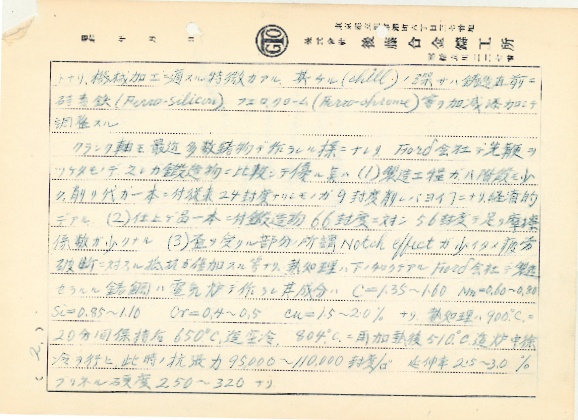 昭和 年 月 日
GTO
株式会社 後藤合金鋳工所
トナリ、機械加工ニ適スル特徴ガアル、其チル(chill)ノ深サハ鋳造直前ニ
硅素鉄(Ferro-silicon)、フェロクローム(Ferro-chrome)等ヲ加減添加シテ
調整スル
クランク軸モ最近多数鋳物デ作ラレル様ニナレリ Ford会社デ先鞭ヲ
ツケタモノデ之レガ鍛造物ニ比較シテ優ル点ハ (1) 製造工程ガ八階級モ少
ク、削リ代ガ一本ニ付従来24封度ナリシモノガ9封度削レバヨイ事ニナリ、経済的
デアル、(2) 仕上デ一本ニ付鍛造物66封度ニ対シ56封度デ足リ摩擦
係数ガ少クナル (3) 歪ヲ受クル部分ノ所謂Notch effectガ少イタメ疲労
破断ニ対スル抵抗力倍加スル等ナリ、熱処理ハ下ノ如クデアル Ford会社デ製造
セラルル鋳鋼ハ電気炉デ作ラレ其成分ハ C=1.35~1.60 Mn=0.60~0.80
Si=0.85~1.10 Cr=0.4~0.5 Cu=1.5~2.0% ナリ 熱処理ハ900℃ニ
20分間保持后650℃迄空冷、804℃ニ再加熱後510℃迄炉中徐
冷ヲ行ヒ、此時ノ抗張力95,000~110,000封度/□" 延伸率2.5~3.0%
ブリネル硬度250~320ナリ
(2)